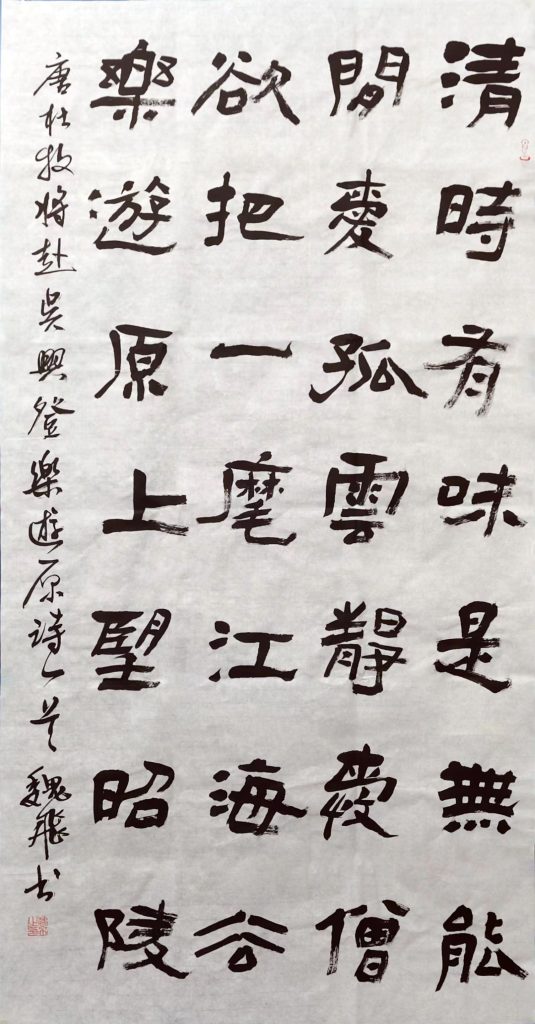 清時有味是無能
閒愛孤雲靜愛僧
欲把一麾江海去
樂遊原上望昭陵
唐杜牧將赴吳興登樂遊原詩一首 魏飛书